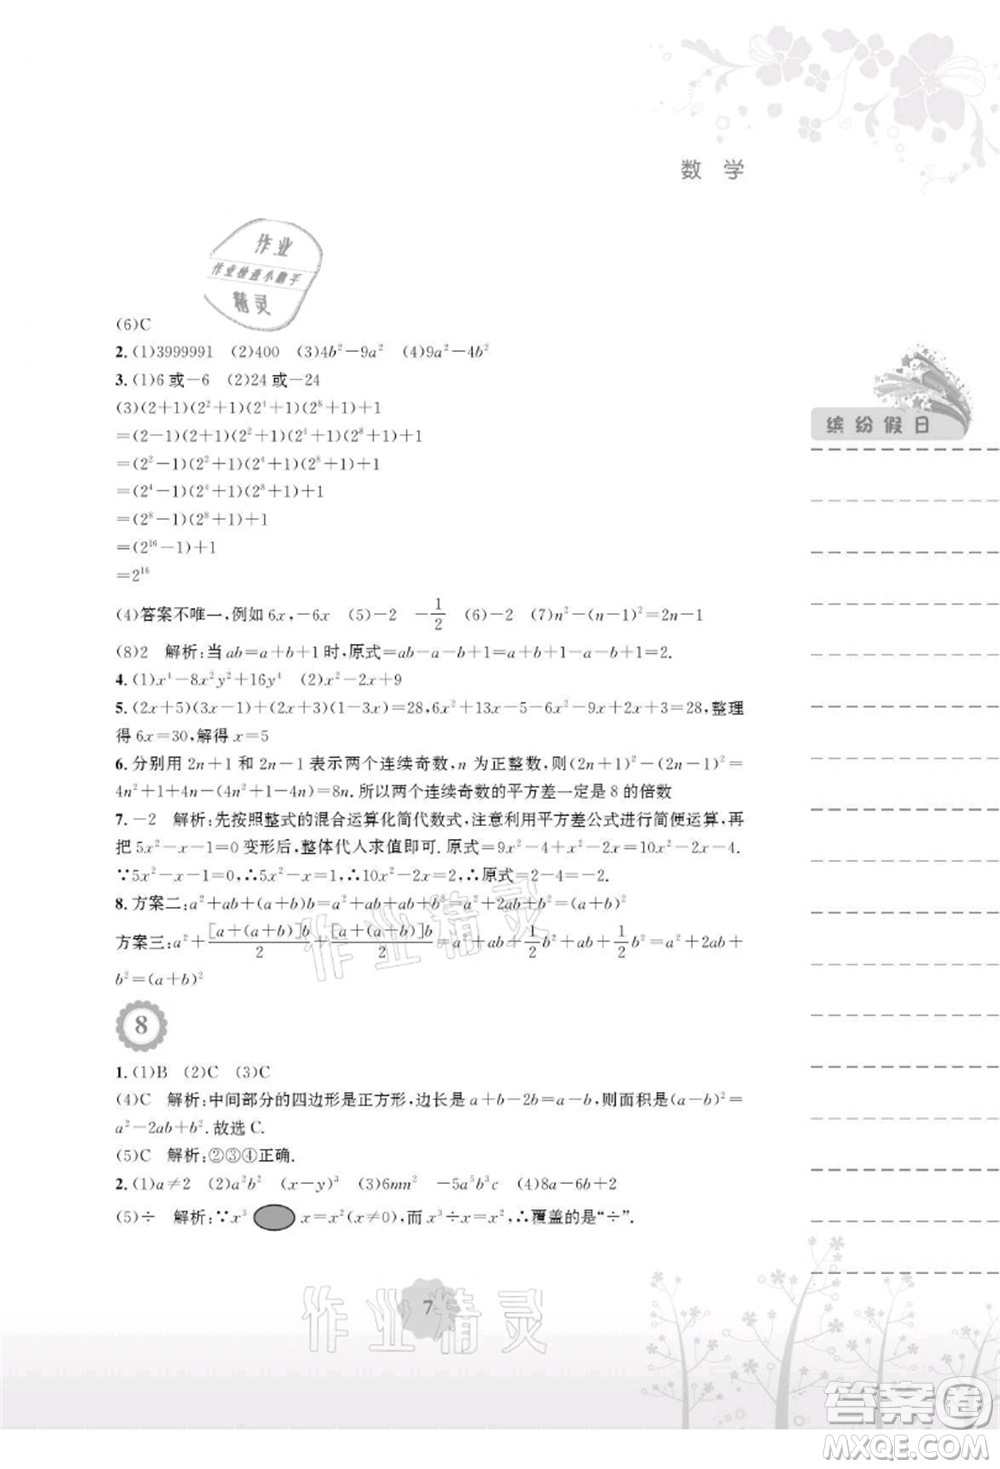 数 学
作业
作业检查小助手
精灵
(6)C
2. (1)3999991 (2)400 (3)4b²-9a² (4)9a²-4b²
3. (1)6或-6 (2)24或-24
(3)(2+1)(2²+1)(2⁴+1)(2⁸+1)+1
=(2-1)(2+1)(2²+1)(2⁴+1)(2⁸+1)+1
=(2²-1)(2²+1)(2⁴+1)(2⁸+1)+1
=(2⁴-1)(2⁴+1)(2⁸+1)+1
=(2⁸-1)(2⁸+1)+1
=(2¹⁶-1)+1
=2¹⁶
(4)答案不唯一,例如6x,-6x (5)-2 -1/2 (6)-2 (7)n²-(n-1)²=2n-1
(8)2 解析:当ab=a+b+1时,原式=ab-a-b+1=a+b+1-a-b+1=2.
4. (1)x⁴-8x²y²+16y⁴ (2)x²-2x+9
5. (2x+5)(3x-1)+(2x+3)(1-3x)=28,6x²+13x-5-6x²-7x+3=28,整理
得6x=30,解得x=5
6. 分别用2n+1和2n-1表示两个连续奇数,n为正整数,则(2n+1)²-(2n-1)²=
4n²+1+4n-(4n²+1-4n)=8n.所以两个连续奇数的平方差一定是8的倍数
7. -2 解析:先按照整式的混合运算化简代数式,注意利用平方差公式进行简便运算,再
把5x²-x-1=0变形后,整体代人求值即可.原式=9x²-4+x²-2x=10x²-2x-4.
∵5x²-x-1=0,∴5x²-x=1,∴10x²-2x=2,∴原式=-2.
8. 方案二:a²+ab+(a+b)b=a²+ab+ab+b²=a²+2ab+b²=(a+b)²
方案三:a²+[a+(a+b)]b/2+[a+(a+b)]b/2=a²+ab+1/2b²+ab+1/2b²=a²+2ab+
b²=(a+b)²
8
1. (1)B (2)C (3)C
(4)C 解析:中间部分的四边形是正方形,边长是a+b-2b=a-b,则面积是(a-b)²=
a²-2ab+b².故选C.
(5)C 解析:②③④正确.
2. (1)a≠2 (2)a²b² (x-y)³ (3)6mn² -5a³b³c (4)8a-6b+2
(5)÷ 解析:∵x³ x=x²(x≠0),而x³÷x=x²,∴覆盖的是“÷”.
缤纷假日
作业精灵
作业精灵
7
答案圈
MXQE.COM